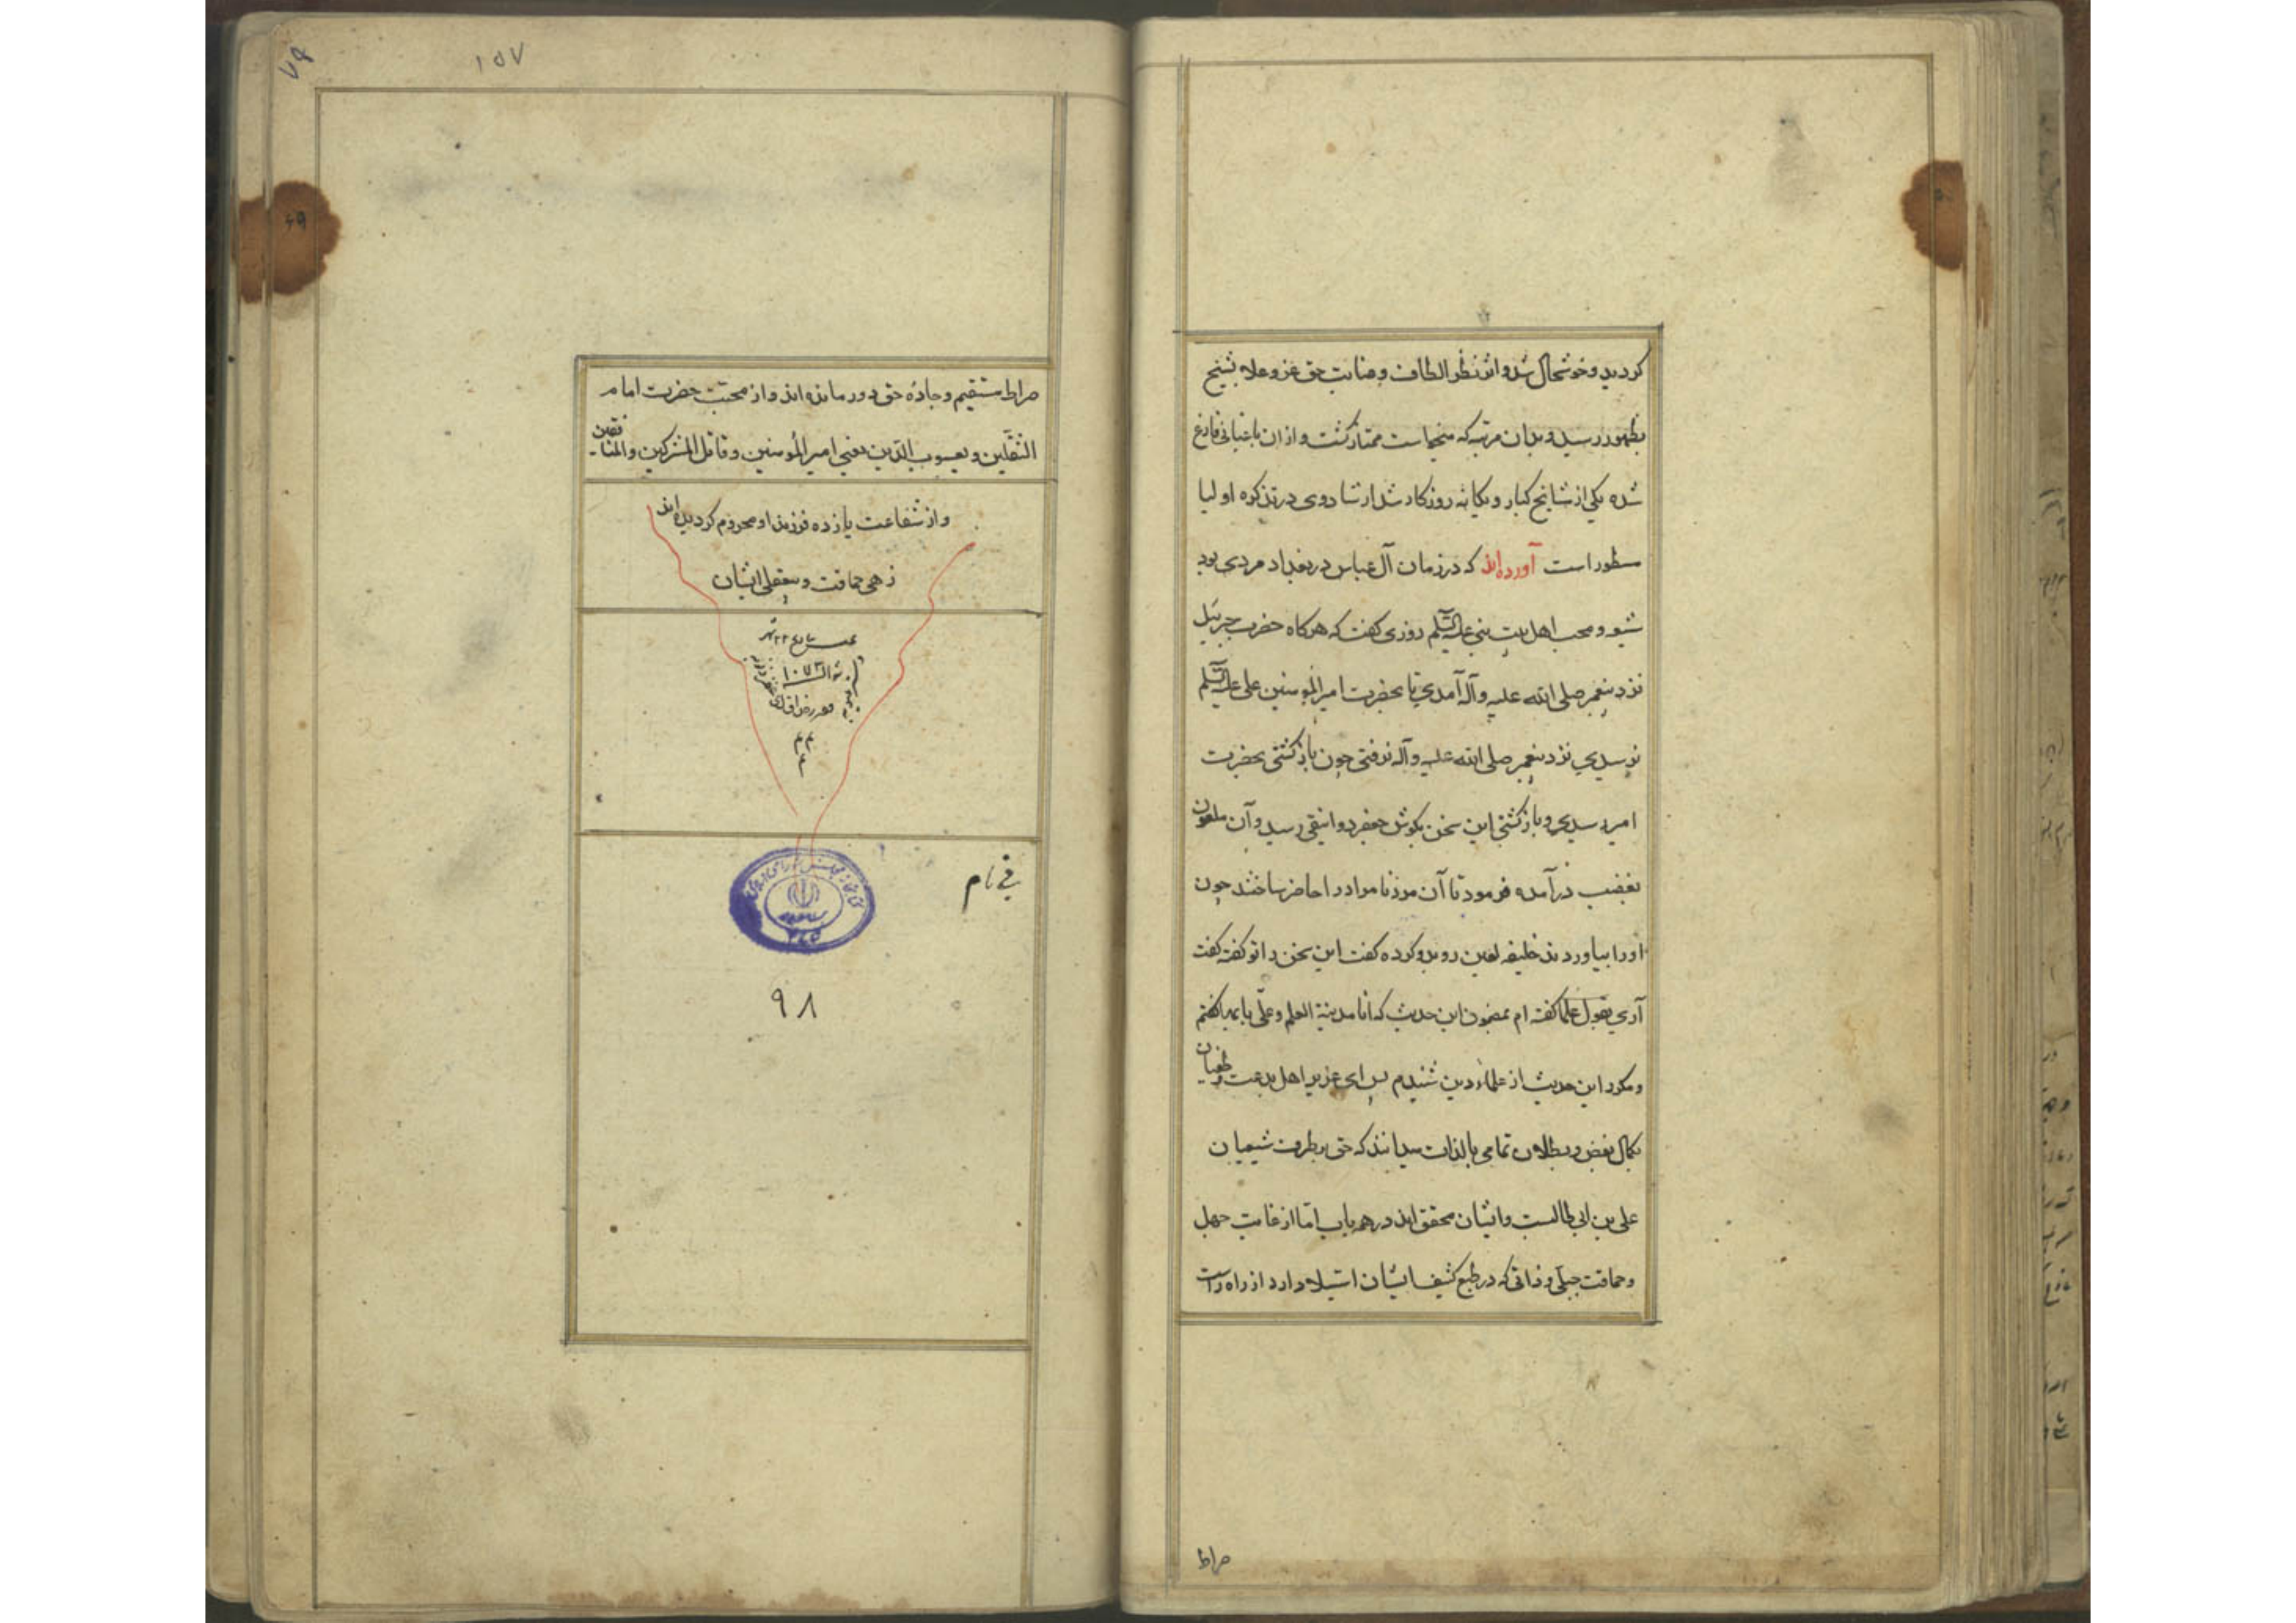 کردید و خوشحال شد و اثر نظر الطاف و عنایت حق عز و علا بشیخ
بظهور رسید و بدان مرتبه که میخواست ممتاز کشت و از ان باغبانی فارغ
شده یکی از مشایخ کبار و یکانه روزکار شد ارشاد وی در تذکره اولیا
مسطور است آورده‌اند که در زمان آل عباس در بغداد مردی بود
شیعه و محب اهل بیت نبی علیه السلم روزی کفت که هرکاه حضرت جبرئیل
نزد پیغمبر صلی الله علیه و آله آمدی تا بحضرت امیر المومنین علی علیه السلم
نرسیدی نزد پیغمبر صلی الله علیه و آله نرفتی چون باز کشتی بحضرت
امیر رسیدی و باز کشتی این سخن بکوش جعفر دوانیقی رسید و آن ملعون
بغضب درآمده فرمود تا آن مرد نامراد را حاضر ساختند چون
او را بیاوردند خلیفه لعین رو بدو کرده کفت این سخن را تو کفته کفت
آری بقول علما کفته ام بمضمون این حدیث که انا مدینة العلم و علی بابها کفتم
و مکرر این حدیث از علماء دین شنیدم پس ای عزیز اهل بدعت و طغیان
بکمال بغض و بطلان تمامی بالذات میدانند که حق بطرف شیعیان
علی بن ابی طالبست و ایشان محقق‌اند در همه باب اما از غایت جهل
و حماقت جبلی و ذاتی که در طبع کثیف ایشان استیلا دارد از راه راست
صراط
۱۵۷
۷۹
صراط مستقیم و جادهٔ حق دور مانده اند و از محبت حضرت امام
الثقلین و یعسوب الدین یعنی امیر المومنین و قاتل المشرکین و المنافقین
و از شفاعت یازده فرزند او محروم کردیده اند
زهی حماقت و بیعقلی ایشان
بتاریخ ۲۲ شهر
شوال ۱۰۷۳
۹۸